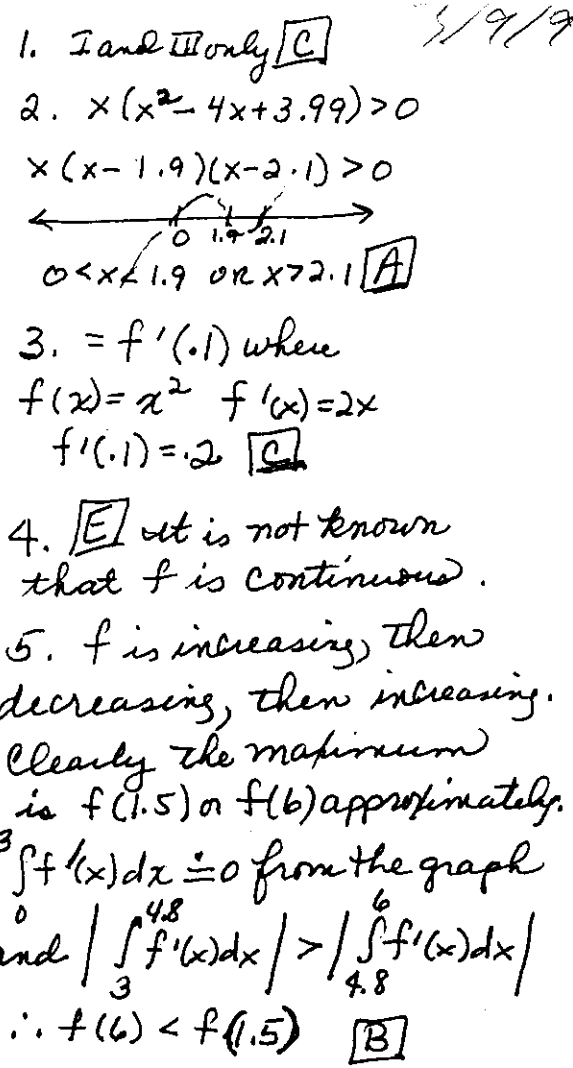 3/9/9
1. I and III only C
2. x(x²-4x+3.99)>0
x(x-1.9)(x-2.1)>0
0 1.9 2.1
0<x<1.9 OR x>2.1 A
3. = f'(.1) where
f(x)=x² f'(x)=2x
f'(.1)=.2 C
4. E It is not known
that f is continuous.
5. f is increasing, then
decreasing, then increasing.
Clearly the maximum
is f(1.5) or f(6) approximately.
∫₀³ f'(x)dx ≐ 0 from the graph
and |∫₃^4.8 f'(x)dx| > |∫_4.8^6 f'(x)dx|
∴ f(6) < f(1.5) B